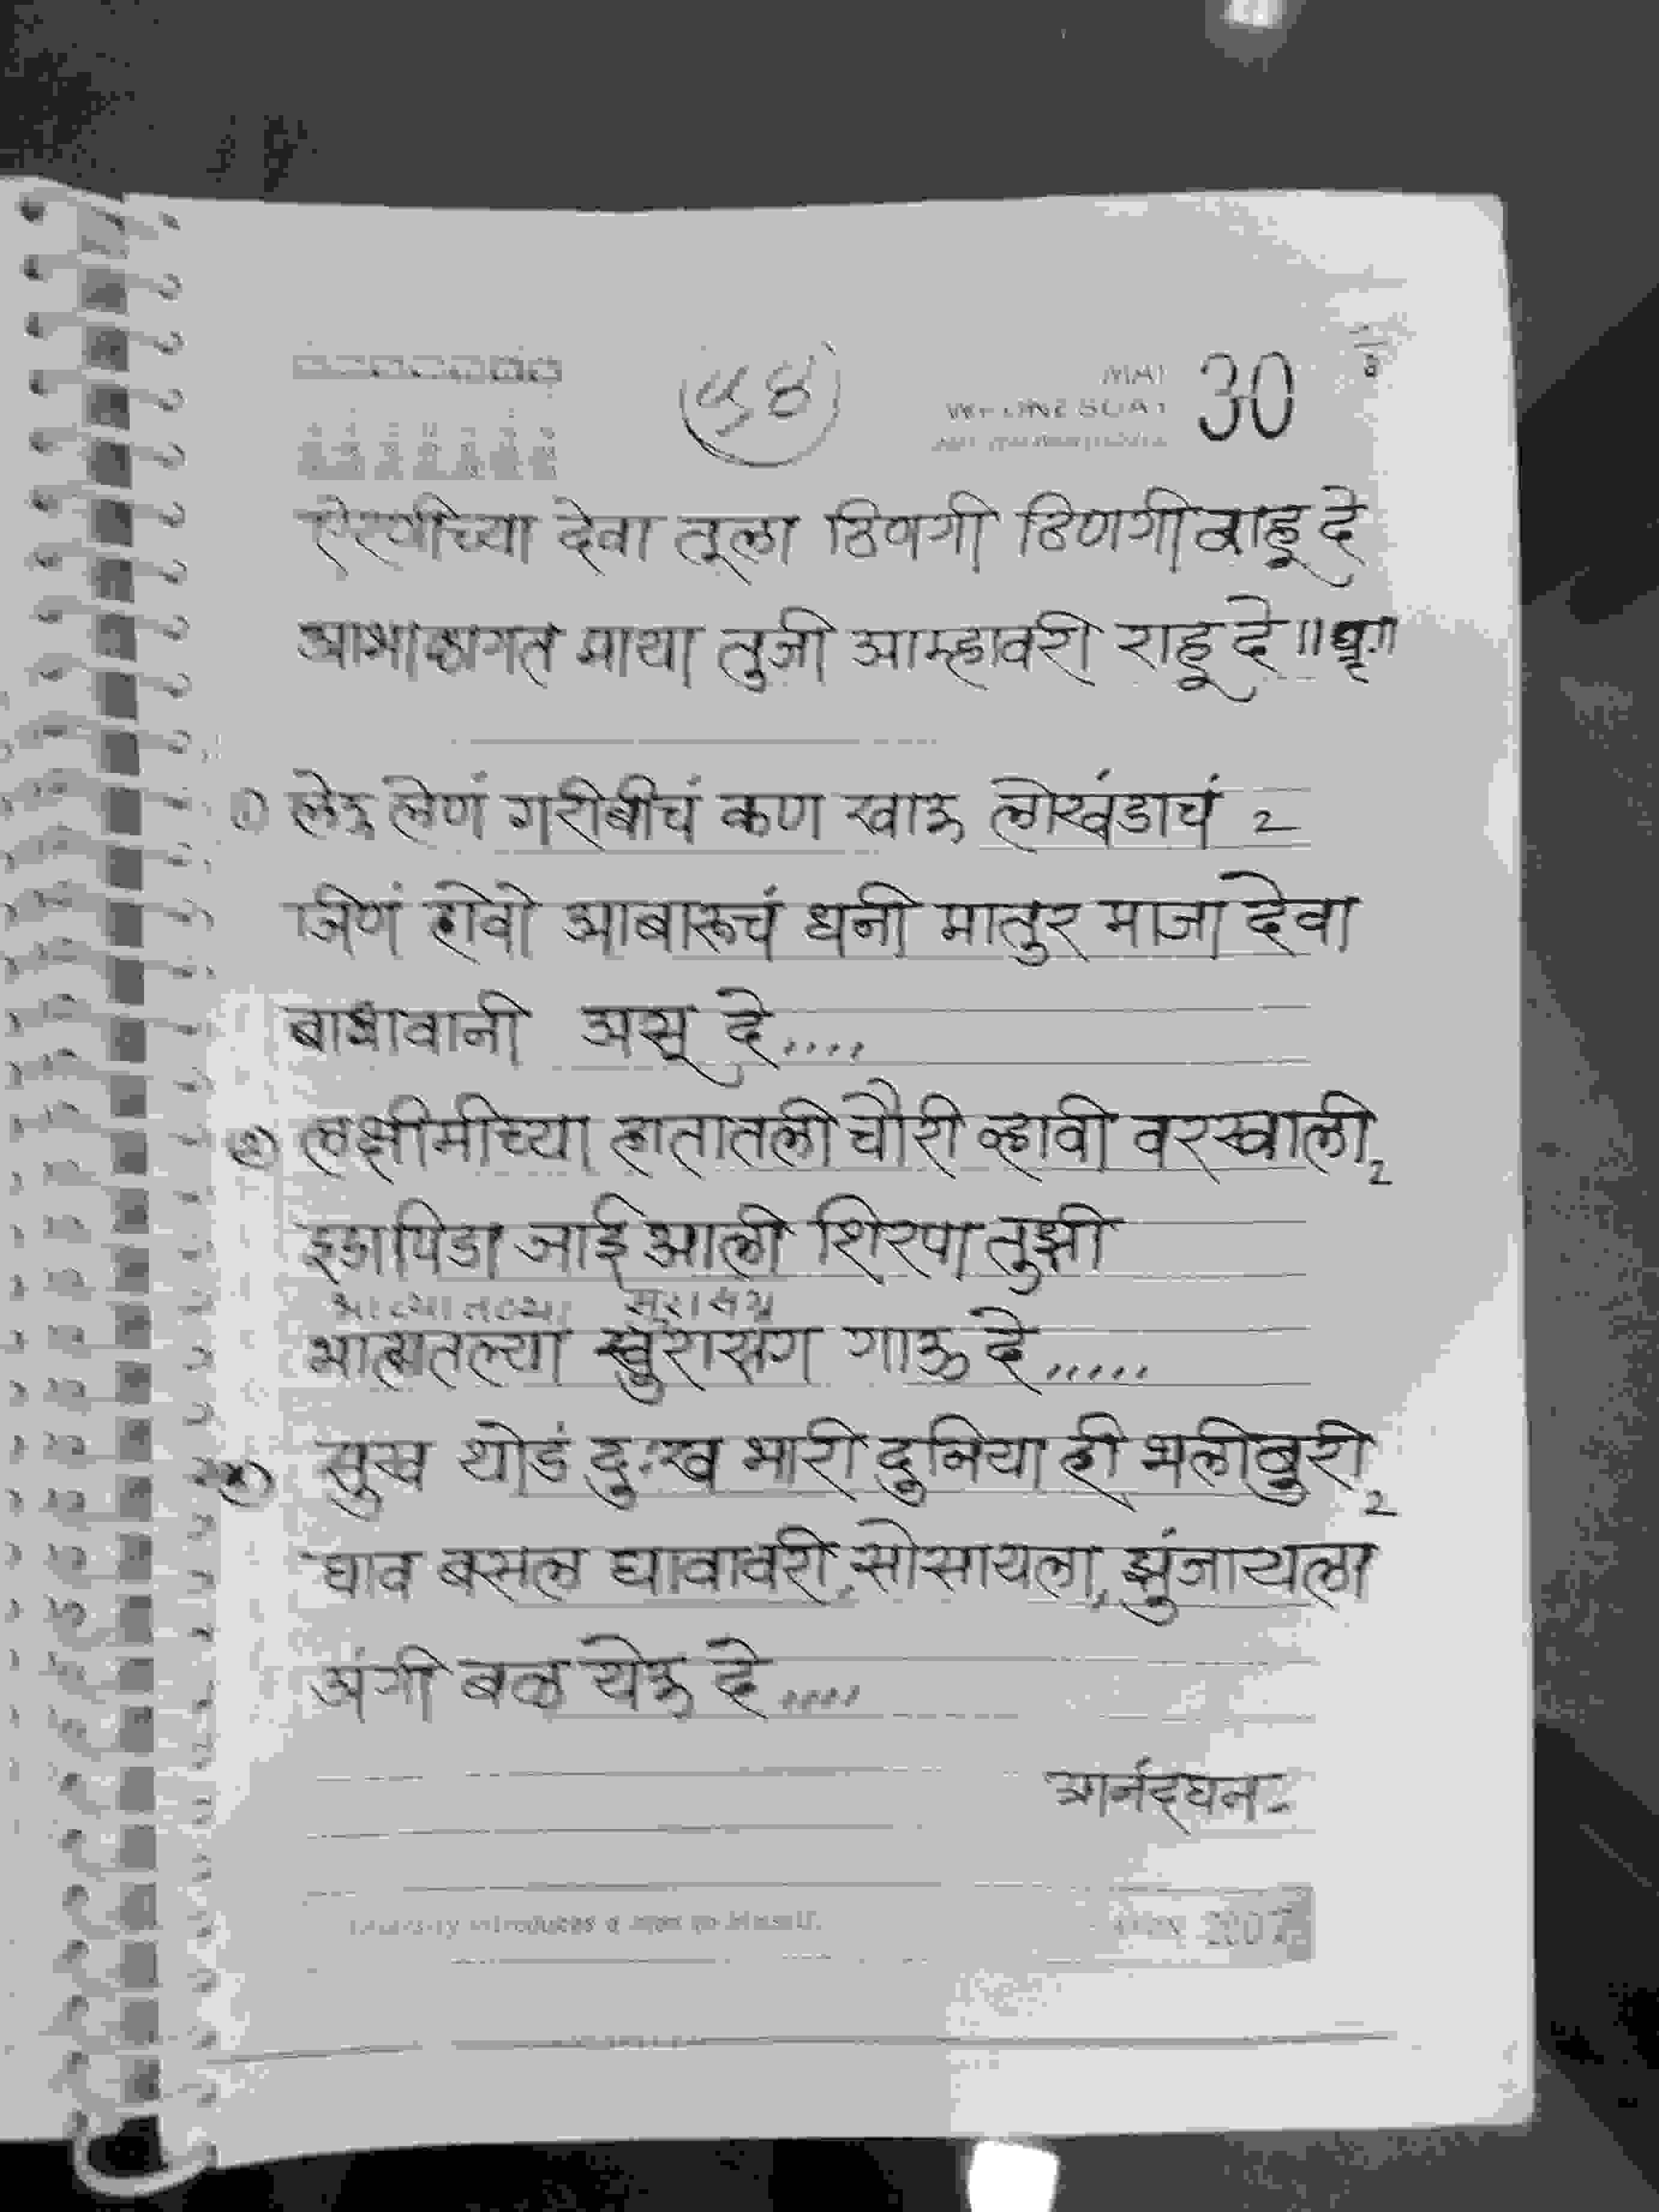 ५४
MAY
WEDNESDAY
30
ऐरणीच्या देवा तूला ठिणगी ठिणगी वाहू दे
आभाळागत माया तुजी आम्हावरी राहू दे ॥धृ॥
१) लेऊ लेणं गरीबीचं कण खाऊ लोखंडाचं 2
जिणं होवो आबारूचं धनी मातुर माजा देवा
वाघावानी असू दे....
२) लक्षीमीच्या हातातली चौरी व्हावी वरखाली 2
इडापिडा जाई आली शिरपा तुझी
भात्यातल्या सुरासंग
भात्यातल्या सुरासंग गाऊ दे.....
३) सुख थोडं दुःख भारी दुनिया ही भलीबुरी 2
घाव बसल घावावरी, सोसायला, झुंजायला
अंगी बळ येऊ दे....
आनंदघन-
introduces a man to himself.
2007